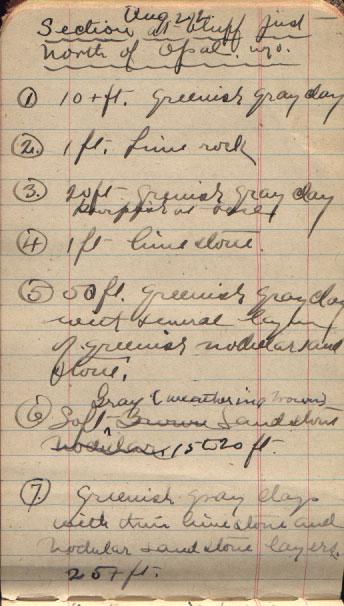 Aug 2
Section at bluff just
North of Opal. Wyo.
① 10+ft. Greenish gray clay
②. 1 ft. Lime rock
③. 20ft Grenish gray clay
at base
④ 1 ft limestone.
⑤ 50 ft. Greenish gray clay
with several layers
of greenish nodular sand
stone.
Gray (weathering brown)
⑥ Soft Brown Sandstone
Nodular 15 to 20 ft.
⑦. Greenish gray clays
with thin limestone and
nodular sandstone layers.
25+ft.